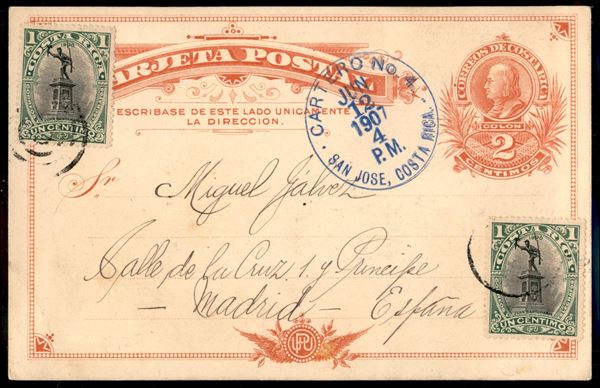 1 COSTA RICA 1
UN CENTIMO
TARJETA POSTAL
ESCRIBASE DE ESTE LADO UNICAMENTE
LA DIRECCION.
CARTERO No 4.
JUN
12
1907
4
P.M.
SAN JOSE, COSTA RICA.
CORREOS DE COSTA RICA
COLON
2
CENTIMOS
Sr. Miguel Galvez
Calle de la Cruz 1. y Principe
— Madrid — España
1 COSTA RICA 1
UN CENTIMO